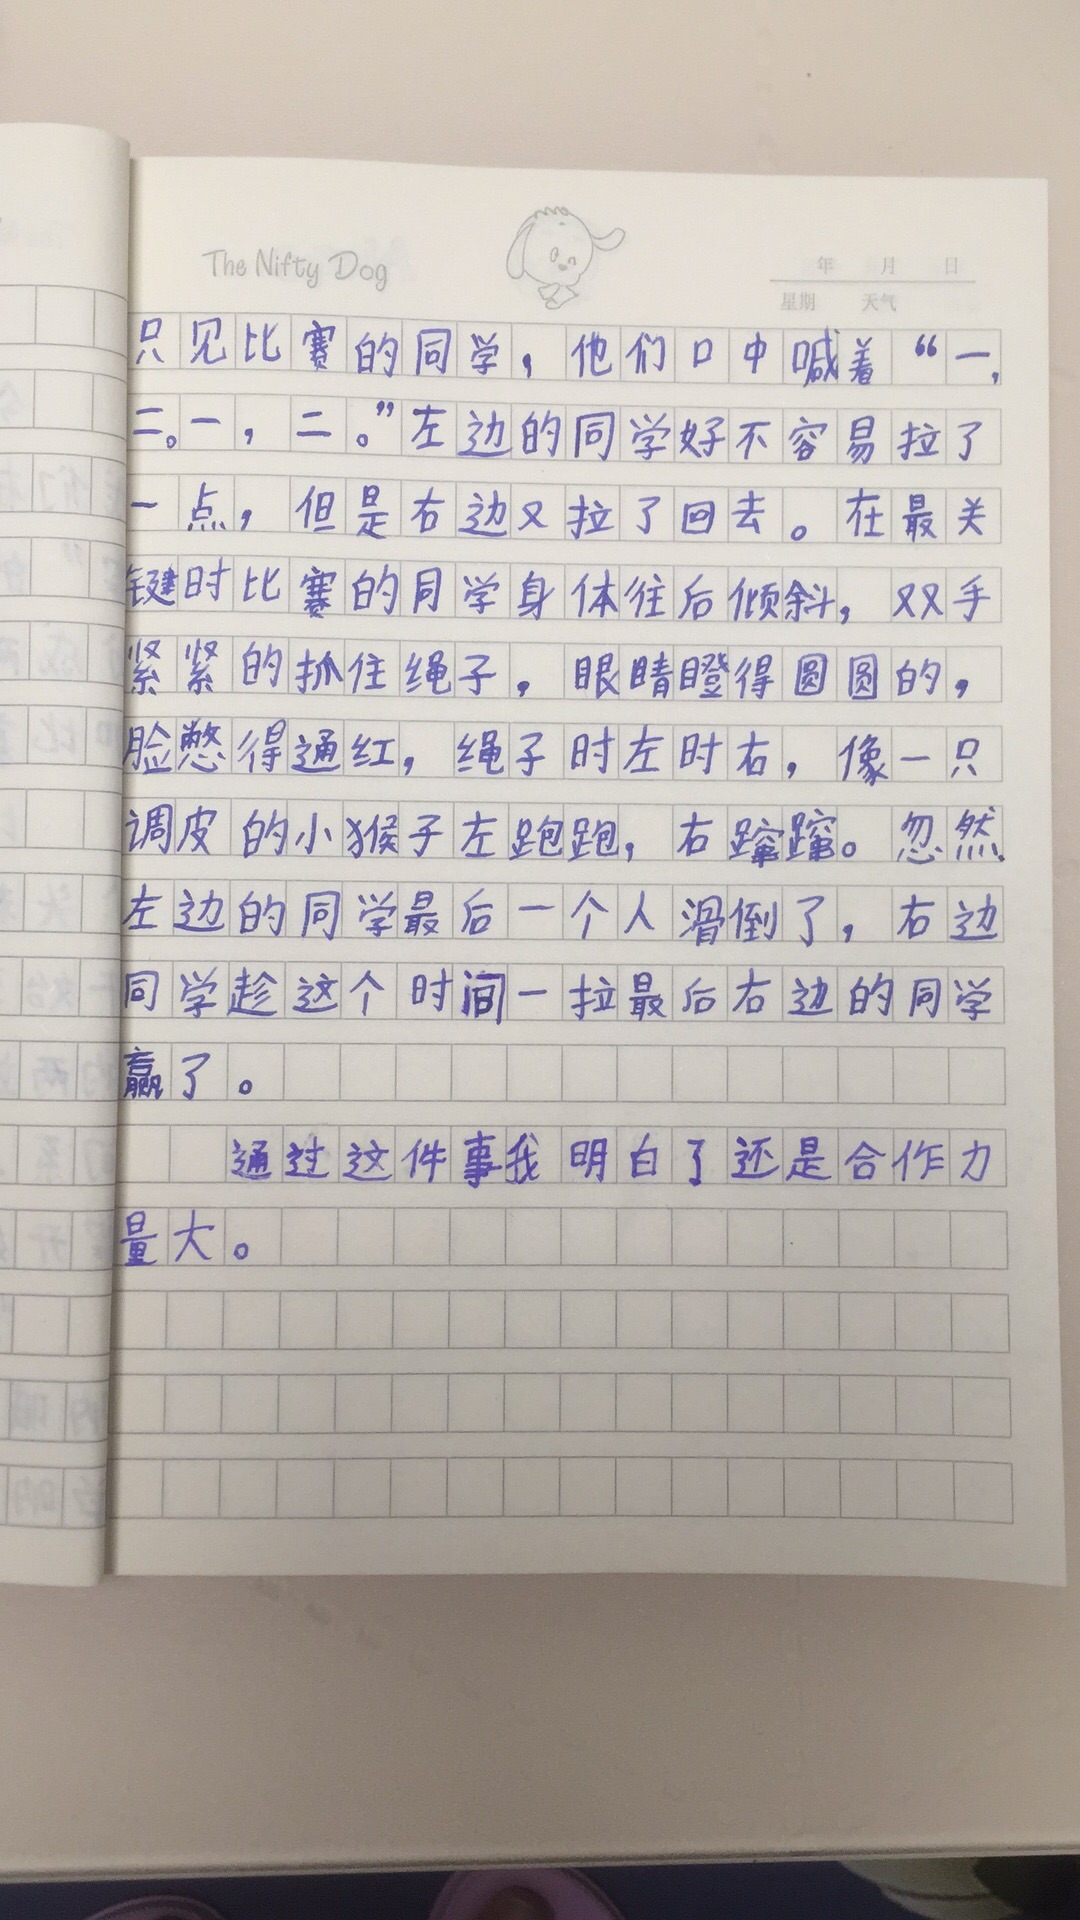 The Nifty Dog
年 月 日
星期 天气
只见比赛的同学，他们口中喊着“一，
二。一，二。”左边的同学好不容易拉了
一点，但是右边又拉了回去。在最关
键时比赛的同学身体往后倾斜，双手
紧紧的抓住绳子，眼睛瞪得圆圆的，
脸憋得通红，绳子时左时右，像一只
调皮的小猴子左跑跑，右蹿蹿。忽然，
左边的同学最后一个人滑倒了，右边
同学趁这个时间一拉最后右边的同学
赢了。
通过这件事我明白了还是合作力
量大。